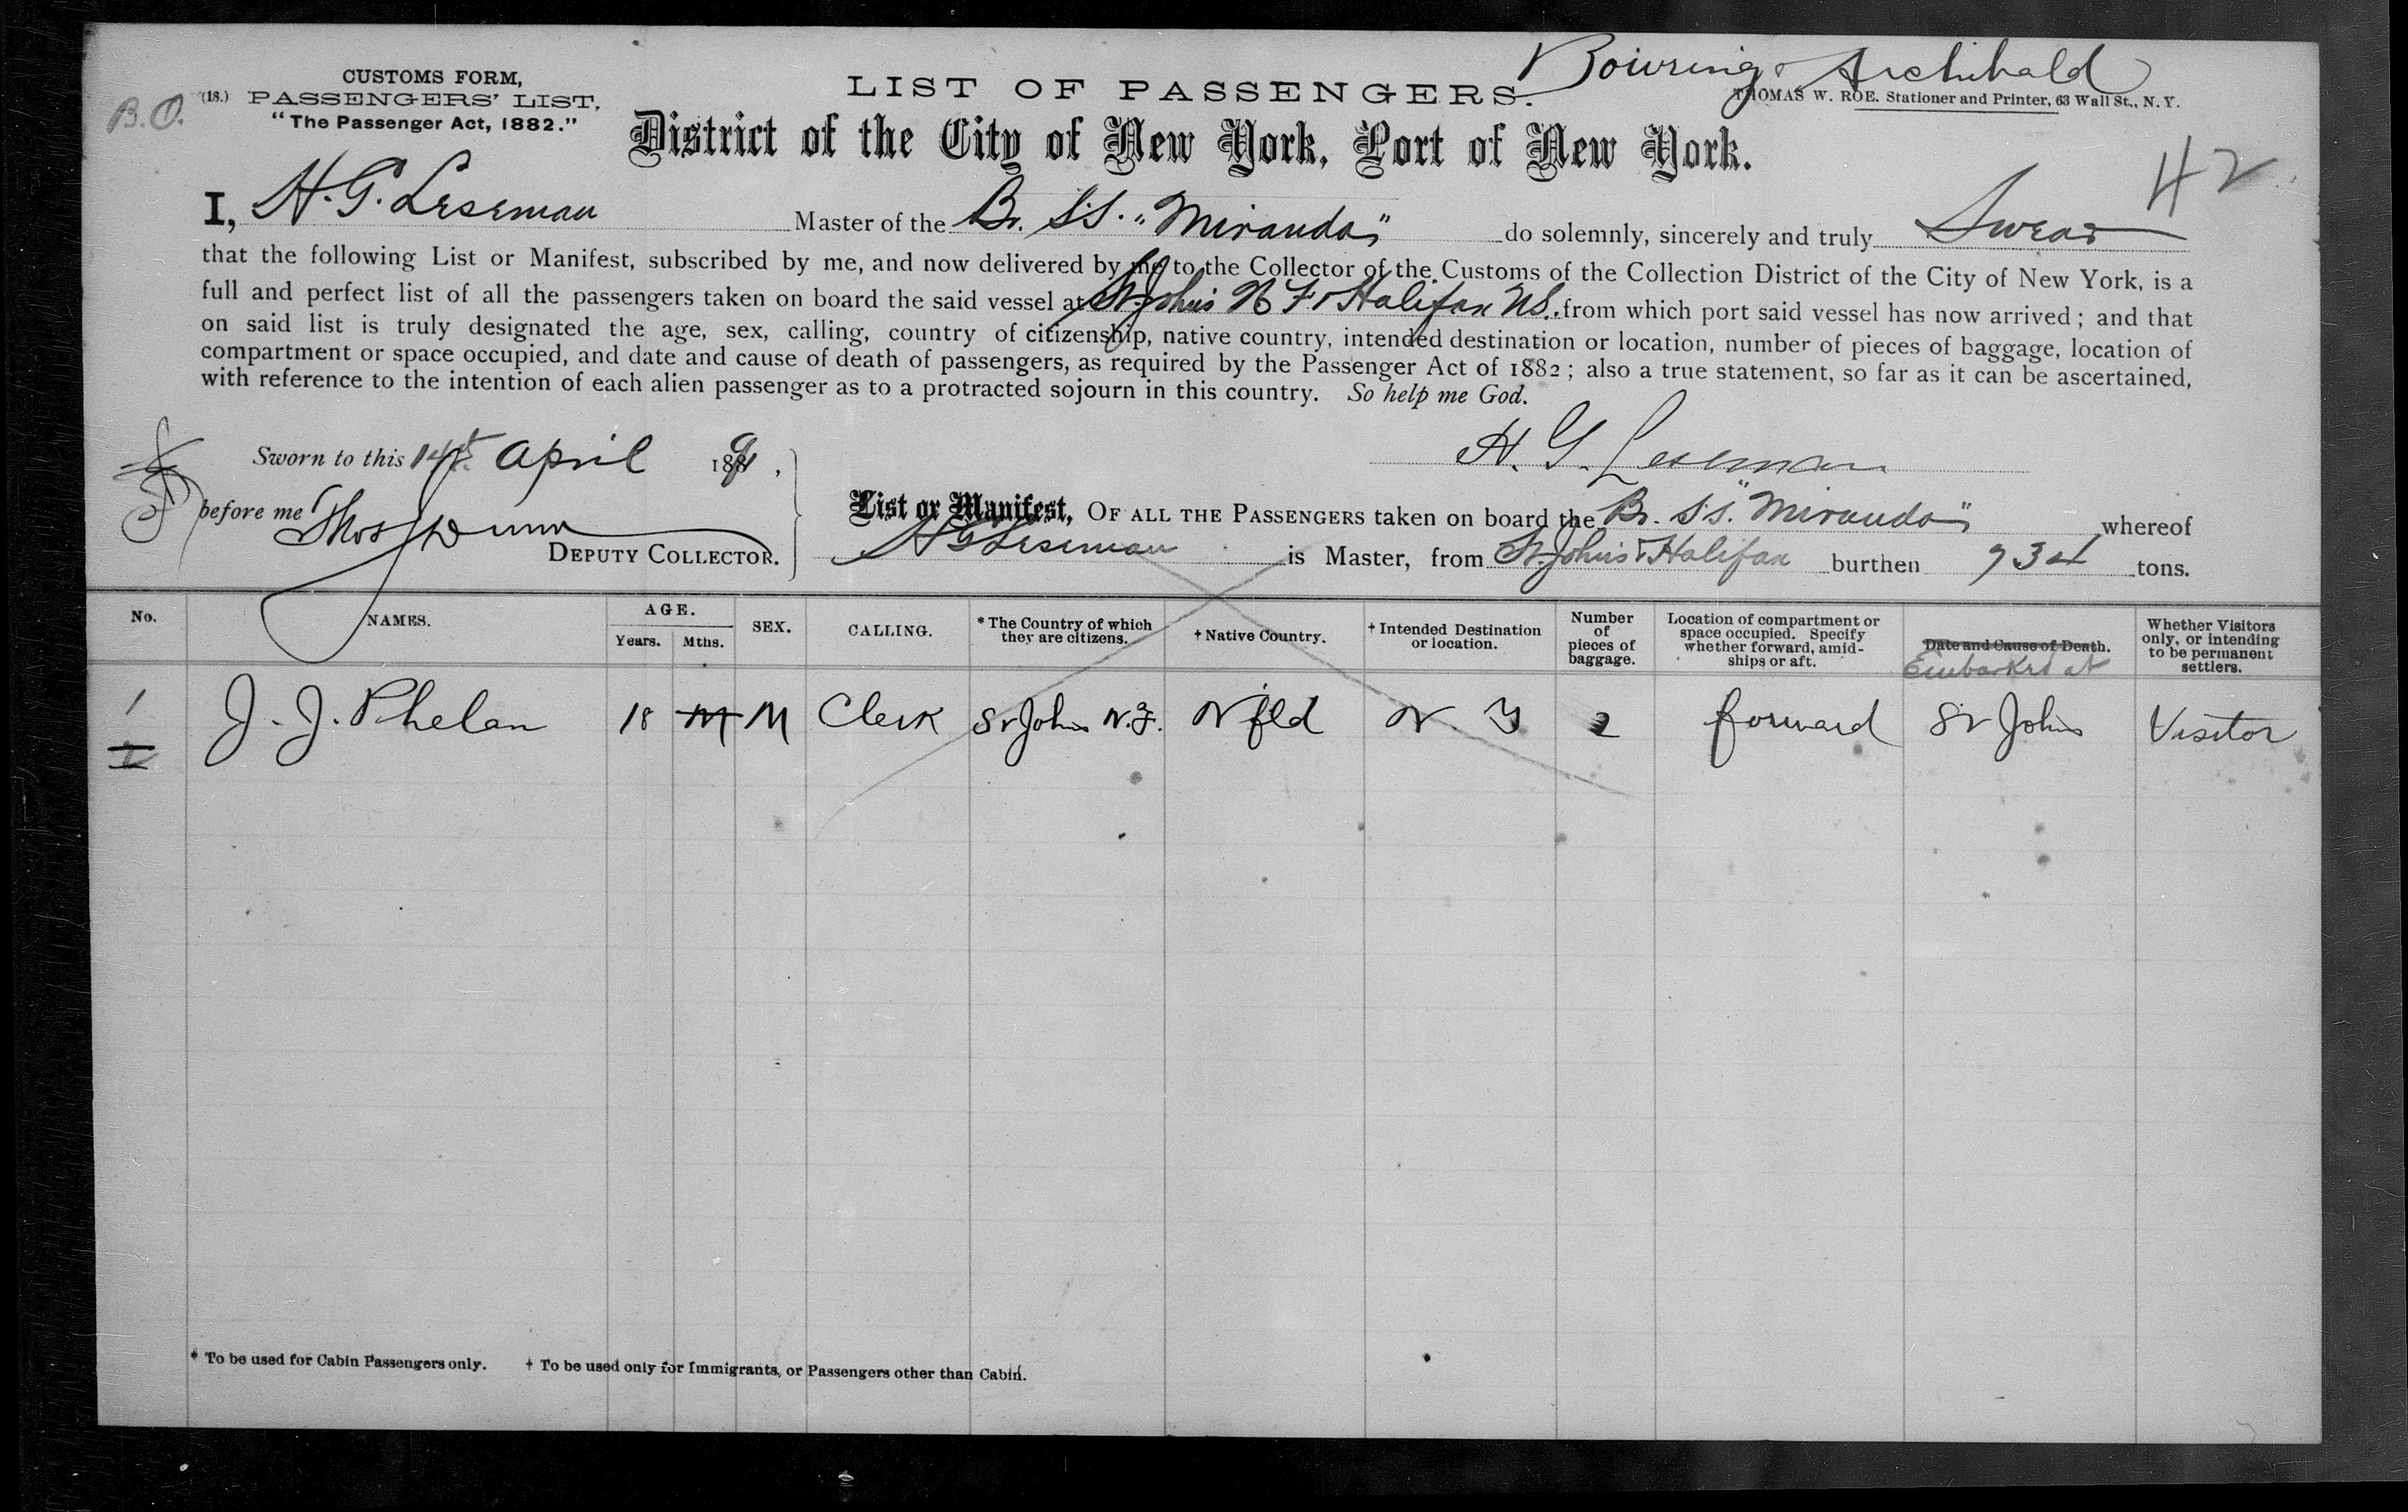 Bowring & Archibald
CUSTOMS FORM,
(18.) PASSENGERS' LIST,
"The Passenger Act, 1882."
B.O.
LIST OF PASSENGERS.
THOMAS W. ROE. Stationer and Printer, 63 Wall St., N. Y.
District of the City of New York, Port of New York.
42
I, H. G. Leseman Master of the Br. S.S. "Miranda" do solemnly, sincerely and truly Swear
that the following List or Manifest, subscribed by me, and now delivered by me to the Collector of the Customs of the Collection District of the City of New York, is a
full and perfect list of all the passengers taken on board the said vessel at St. Johns N F & Halifax N.S. from which port said vessel has now arrived; and that
on said list is truly designated the age, sex, calling, country of citizenship, native country, intended destination or location, number of pieces of baggage, location of
compartment or space occupied, and date and cause of death of passengers, as required by the Passenger Act of 1882; also a true statement, so far as it can be ascertained,
with reference to the intention of each alien passenger as to a protracted sojourn in this country. So help me God.
Sworn to this 14th April 1891.
H. G. Leseman
before me Thos Dunn
DEPUTY COLLECTOR.
List or Manifest, OF ALL THE PASSENGERS taken on board the Br. S.S. "Miranda" whereof
H G Leseman is Master, from St. Johns & Halifax burthen 934 tons.
No. NAMES. AGE. Years. Mths. SEX. CALLING. * The Country of which they are citizens. † Native Country. † Intended Destination or location. Number of pieces of baggage. Location of compartment or space occupied. Specify whether forward, amidships or aft. Date and Cause of Death. Embarked at Whether Visitors only, or intending to be permanent settlers.
1 J. J. Phelan 18 M M Clerk St Johns N.F. Nfld N. Y 2 forward St Johns Visitor
* To be used for Cabin Passengers only. † To be used only for Immigrants, or Passengers other than Cabin.